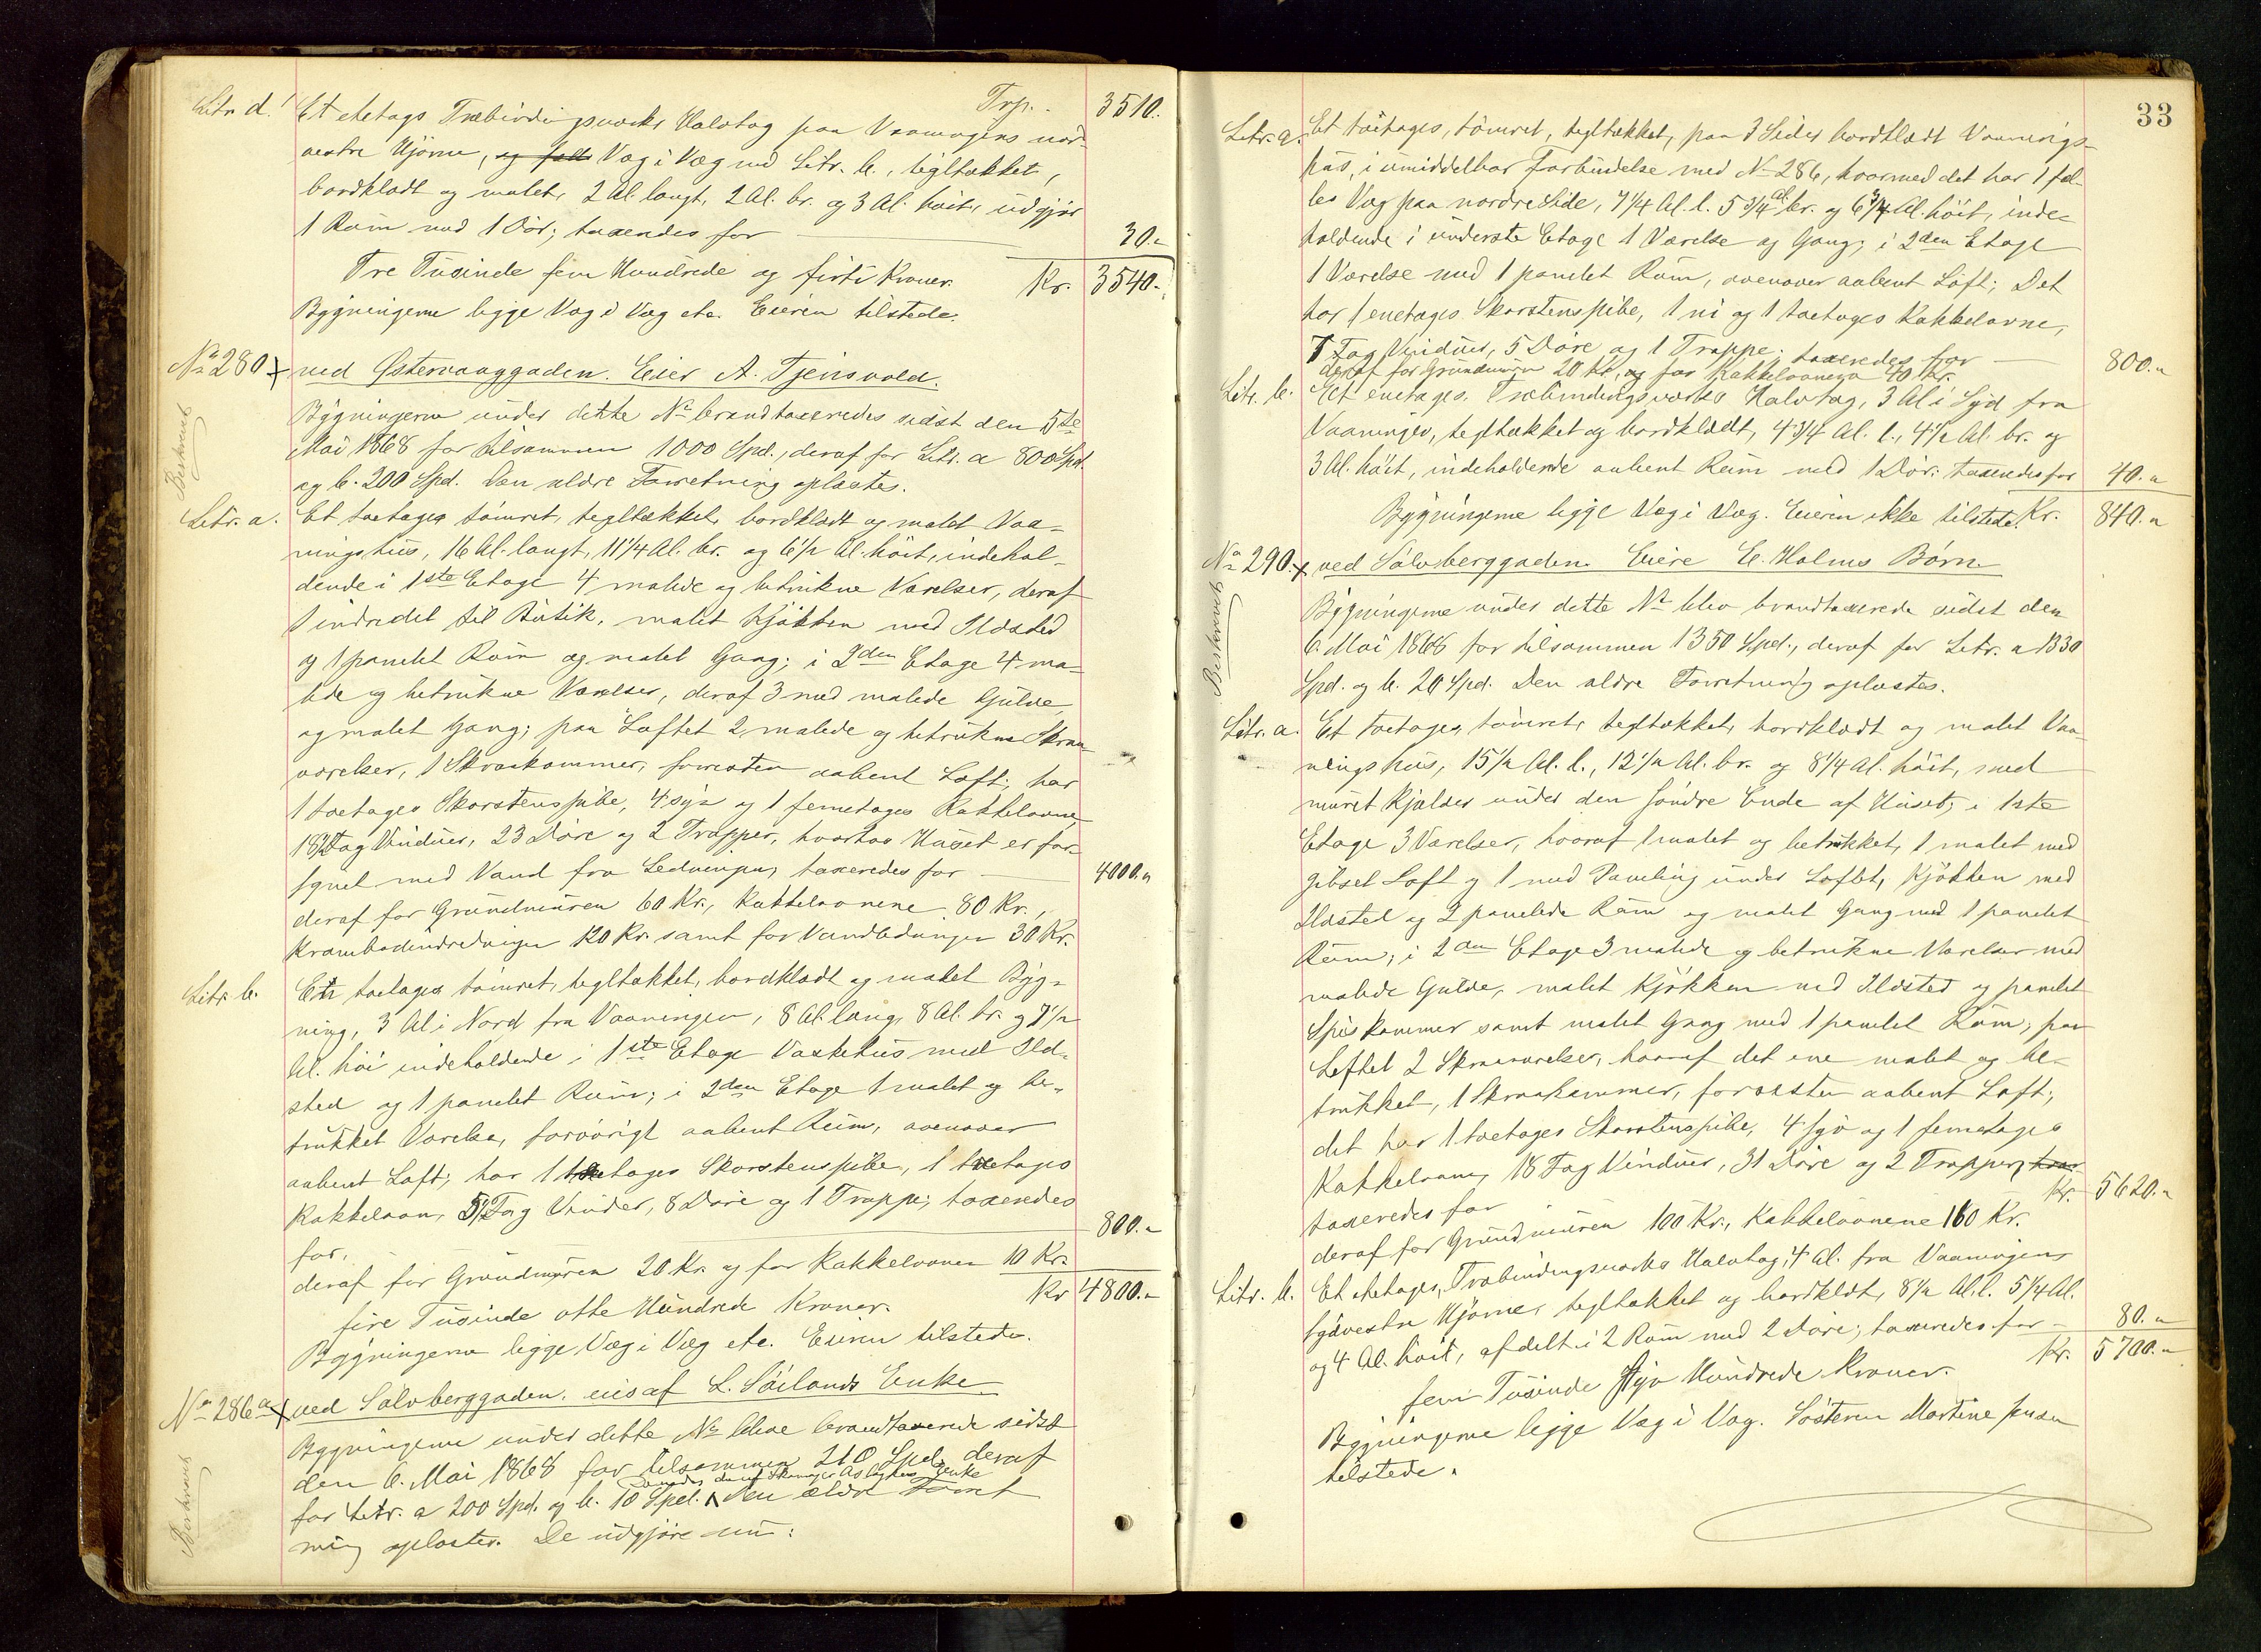 Trp. 3510.
Litr. d. Et etetages Træbindingsværks Halvtag paa Vaaningens nord-
vestre Hjörne, og Væg i Væg med Litr. b., tegltækket,
bordklædt og malet, 2 Al. langt, 2 Al. br. og 3 Al. höit, udgjör
1 Rum med 1 Dör; taxeredes for 30.-
Tre Tusinde fem Hundrede og firti Kroner. Kr. 3540.-
Bygningerne ligge Væg i Væg etc. Eieren tilstede.
No 280 ved Østervaaggaden. Eier A. Tjensvold.
Beskrevet
Bygningerne under dette No brandtaxeredes sidst den 5te
Mai 1868 for tilsammen 1000 Spd., deraf for Litr. a 800 Spd.
og b. 200 Spd. Den ældre Forretning oplæstes.
Litr. a. Et toetages tömret, tegltækket, bordklædt og malet Vaa-
ningshus, 16 Al. langt, 11 1/4 Al. br. og 6 1/2 Al. höit, indehol-
dende i 1ste Etage 4 malede og betrukne Værelser, deraf
1 indredet til Butik, malet Kjökken med Ildsted
og 1 panelet Rum og malet Gang; i 2den Etage 4 ma-
lede og betrukne Værelser, deraf 3 med malede Gulve,
og malet Gang; paa Loftet 2 malede og betrukne Skraa-
værelser, 1 Skraakammer, foresten aabent Loft; har
1 toetages Skorstenspibe, 4 syv og 1 femetages Kakkelovne,
18 1/2 Fag Vinduer, 23 Döre og 2 Trapper, hvorhos Huset er for-
synet med Vand fra Ledningen, taxeredes for 4000.-
deraf for Grundmuren 60 Kr., Kakkelovnene 80 Kr.,
Krambodindredningen 120 Kr. samt for Vandledningen 30 Kr.
Litr. b. En toetages tömret, tegltækket, bordklædt og malet Byg-
ning, 3 Al. i Nord fra Vaaningen, 8 Al. lang, 8 Al. br. og 7 1/2
Al. höi indeholdende i 1ste Etage Vaskehus med Ild-
sted og 1 panelet Rum; i 2den Etage 1 malet og be-
trukket Værelse, forövrigt aabent Rum, ovenover
aabent Loft; har 1 toetages Skorstenspibe, 1 toetages
Kakkelovn, 5 1/2 Fag Vinduer, 8 Döre og 1 Trappe; taxeredes
for. 800.-
deraf for Grundmuren 20 Kr. og for Kakkelovnen 10 Kr.
fire Tusinde otte Hundrede Kroner. Kr 4800.-
Bygningerne ligge Væg i Væg etc. Eieren tilstede.
No 286a ved Sølvberggaden. eies af L. Söilands Enke
Beskrevet
Bygningerne under dette No bleve brandtaxerede sidst
den 6. Mai 1868 for tilsammen 210 Spd., deraf
for Litr. a 200 Spd. og b. 10 Spd. Den ældre Forret-
ning oplæstes. De udgjöre nu:
33
Litr. a. Et toetages, tömret, tegltækket, paa 3 Sider bordklædt Vaanings-
hus, i umiddelbar Forbindelse med No 286, hvormed det har 1 fæl-
les Væg paa nordre Side, 7 1/4 Al. l. 5 3/4 Al. br. og 6 3/4 Al. höit, inde-
holdende i underste Etage 1 Værelse og Gang; i 2den Etage
1 Værelse med 1 panelet Rum, ovenover aabent Loft; Det
har 1 enetages Skorstenspibe, 1 ni og 1 toetages Kakkelovne,
7 Fag Vinduer, 5 Döre og 1 Trappe; taxeredes for 800.-
deraf for Grundmuren 20 Kr., og for Kakkelovnene 40 Kr.
Litr. b. Et enetages Træbindingsværks Halvtag, 3 Al. i Syd fra
Vaaningen, tegltækket og bordklædt, 4 3/4 Al. l., 4 1/2 Al. br. og
3 Al. höit, indeholdende aabent Rum med 1 Dör; taxeredes for 40.-
Bygningerne ligge Væg i Væg. Eieren ikke tilstede. Kr. 840.-
No 290. ved Sølvberggaden. Eiere E. Holms Børn
Beskrevet
Bygningerne under dette No blev brandtaxerede sidst den
6. Mai 1868 for tilsammen 1350 Spd., deraf for Litr. a 1330
Spd. og b. 20 Spd. Den ældre Forretning oplæstes.
Litr. a. Et toetages, tömret, tegltækket, bordklædt og malet Vaa-
ningshus, 15 1/2 Al. l., 12 1/2 Al. br. og 8 1/4 Al. höit, med
muret Kjælder under den söndre Ende af Huset; i 1ste
Etage 3 Værelser, hvoraf 1 malet og betrukket, 1 malet med
gibset Loft og 1 med Paneling under Loftet, Kjökken med
Ildsted og 2 panelede Rum og malet Gang med 1 panelet
Rum; i 2den Etage 3 malede og betrukne Værelser med
malede Gulve, malet Kjökken med Ildsted og panelet
Spiskammer samt malet Gang med 1 panelet Rum; paa
Loftet 2 Skraaværelser, hvoraf det ene malet og be-
trukket, 1 Skraakammer, foroesten aabent Loft;
det har 1 toetages Skorstenspibe, 4 syv og 1 femetages
Kakkelovne, 18 Fag Vinduer, 31 Döre og 2 Trapper, hvor
taxeredes for Kr. 5620.-
deraf for Grundmuren 100 Kr., Kakkelovnene 160 Kr.
Litr. b. Et etetages, Træbindingsværks Halvtag, 4 Al. fra Vaaningens
sydvestre Hjörne, tegltækket og bordklædt, 8 1/2 Al. l. 5 1/4 Al.
og 4 Al. höit, afdelt i 2 Rum med 2 Döre; taxeredes for 80.-
fem Tusinde syv Hundrede Kroner. Kr. 5700.-
Bygningerne ligge Væg i Væg. Søsteren Martine
tilstede.